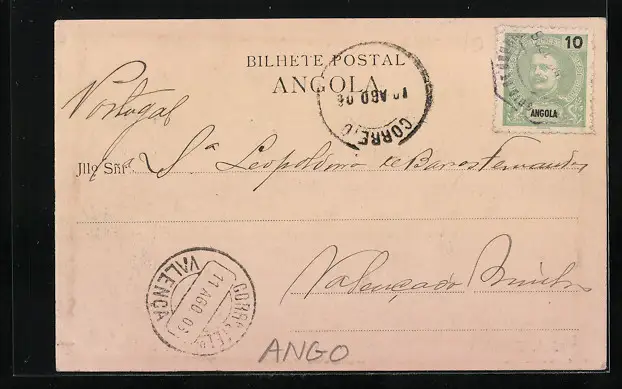 BILHETE POSTAL
ANGOLA
10
ANGOLA
CORREIO
1? AGO 06
Portugal
Illᵐᵒ Sñrᵃ. Sᵃ Leopoldina de Barros Fernandes
Valença do Minho
VALENÇA
11 AGO 06
CORREIO
ANGO